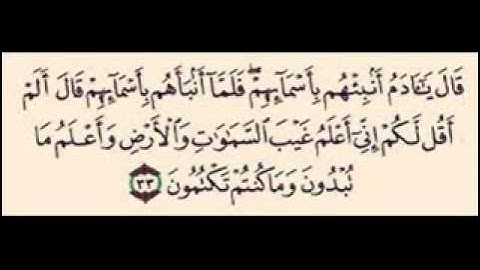 قَالَ يَٰٓـَٔادَمُ أَنۢبِئْهُم بِأَسْمَآئِهِمْ ۖ فَلَمَّآ أَنۢبَأَهُم بِأَسْمَآئِهِمْ قَالَ أَلَمْ
أَقُل لَّكُمْ إِنِّىٓ أَعْلَمُ غَيْبَ ٱلسَّمَٰوَٰتِ وَٱلْأَرْضِ وَأَعْلَمُ مَا
تُبْدُونَ وَمَا كُنتُمْ تَكْتُمُونَ ٣٣